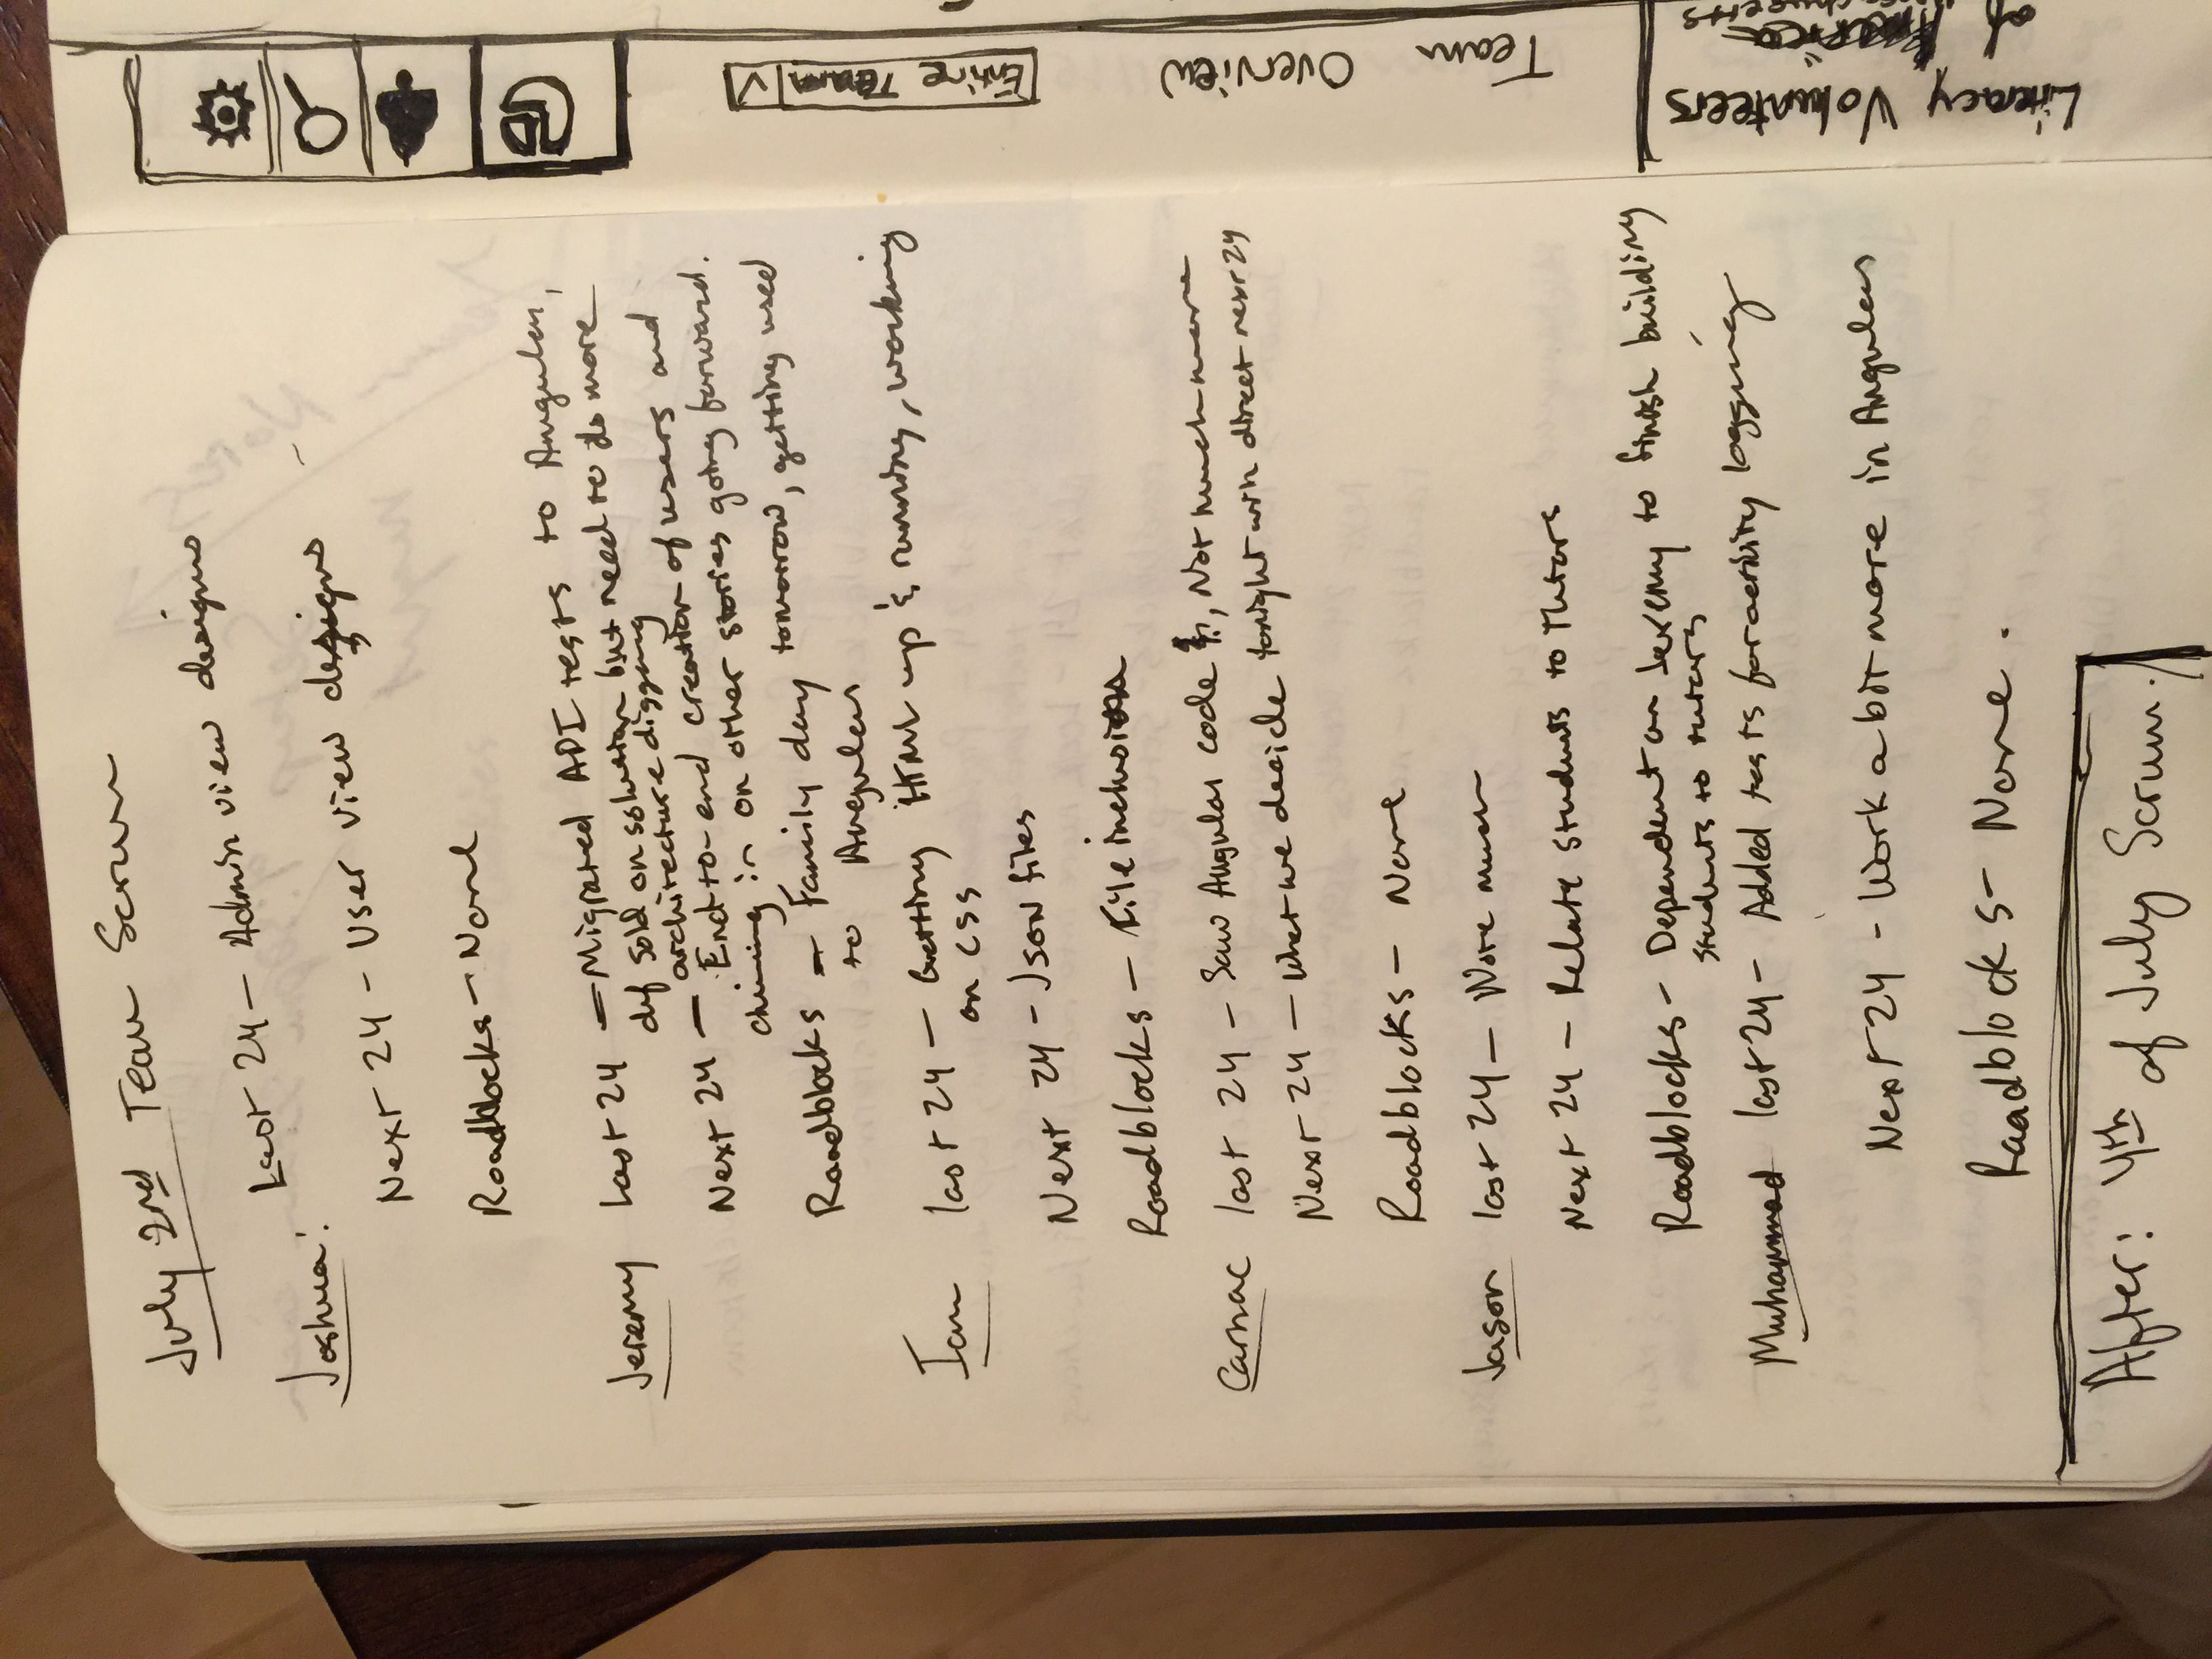 July 2nd Team Scrum
Joshua: Last 24 - Admin view designs
Next 24 - User view designs
Roadblocks - None
Jeremy Last 24 - Migrated API tests to Angular,
def sold on solution but need to do more
architecture digging
Next 24 - End-to-end creation of users and
chiming in on other stories going forward.
Roadblocks - Family day tomorrow, getting used
to Angular
Ian last 24 - Getting HTML up & running, working
on CSS
Next 24 - Json files
Roadblocks - File inclusion
Carnac last 24 - Saw Angular code, Not much more
Next 24 - What we decide tonight with direct next 24
Roadblocks - None
Jason last 24 - Note much
Next 24 - Relate students to Tutors
Roadblocks - Dependent on Jeremy to finish building
students to tutors
Muhammad last 24 - Added tests for activity logging
Next 24 - Work a bit more in Angular
Roadblocks - None.
After: 4th of July Scrum.
Literacy Volunteers
of
Team Overview
Entire Team